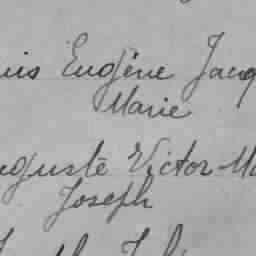 uis Eugène Jacq
Marie
uguste Victor Ma
Joseph